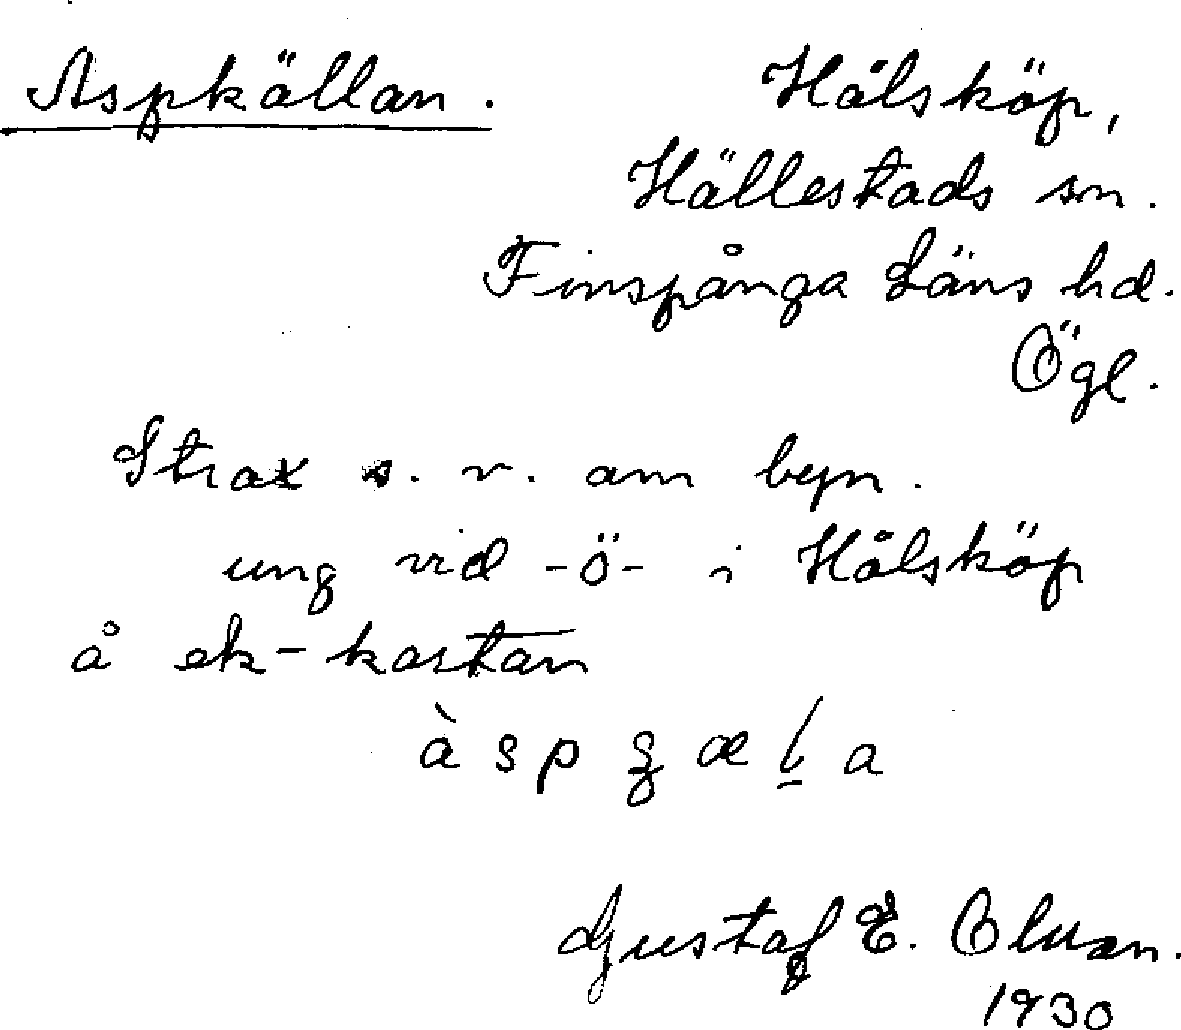 Aspkällan. Hålsköp,
Hällestads sn.
Finspånga Läns hd.
Ögl.
Strax s. v. om byn.
ung vid -ö- i Hålsköp
å ek-kartan
à s p ʒ æ l̲ a
Gustaf E. Olsson.
1930